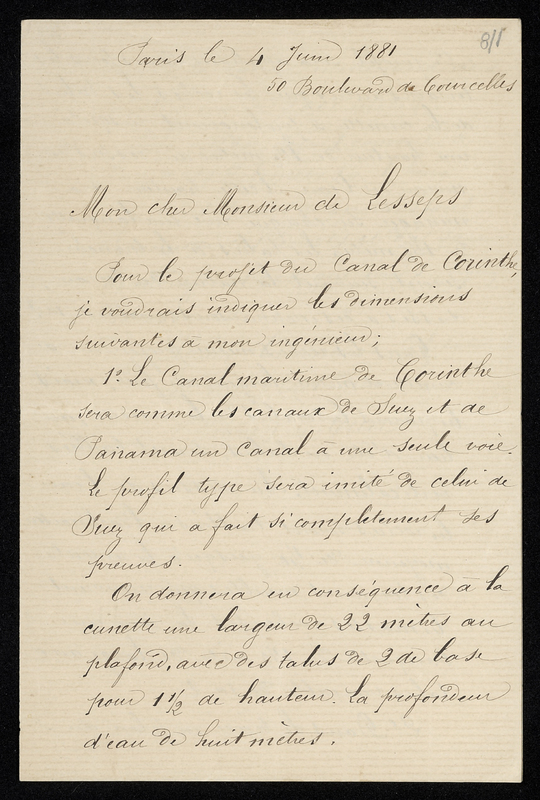 8/1
Paris le 4 Juin 1881
50 Boulevard de Courcelles
Mon cher Monsieur de Lesseps
Pour le profit du Canal de Corinthe,
je voudrais indiquer les dimensions
suivantes à mon ingénieur;
1º. Le Canal maritime de Corinthe
sera comme les canaux de Suez et de
Panama un Canal à une seule voie.
Le profil type sera imité de celui de
Suez qui a fait si completement ses
preuves.
On donnera en conséquence a la
cunette une largeur de 22 mètres au
plafond, avec des talus de 2 de base
pour 1 1/2 de hauteur. La profondeur
d'eau de huit mètres.